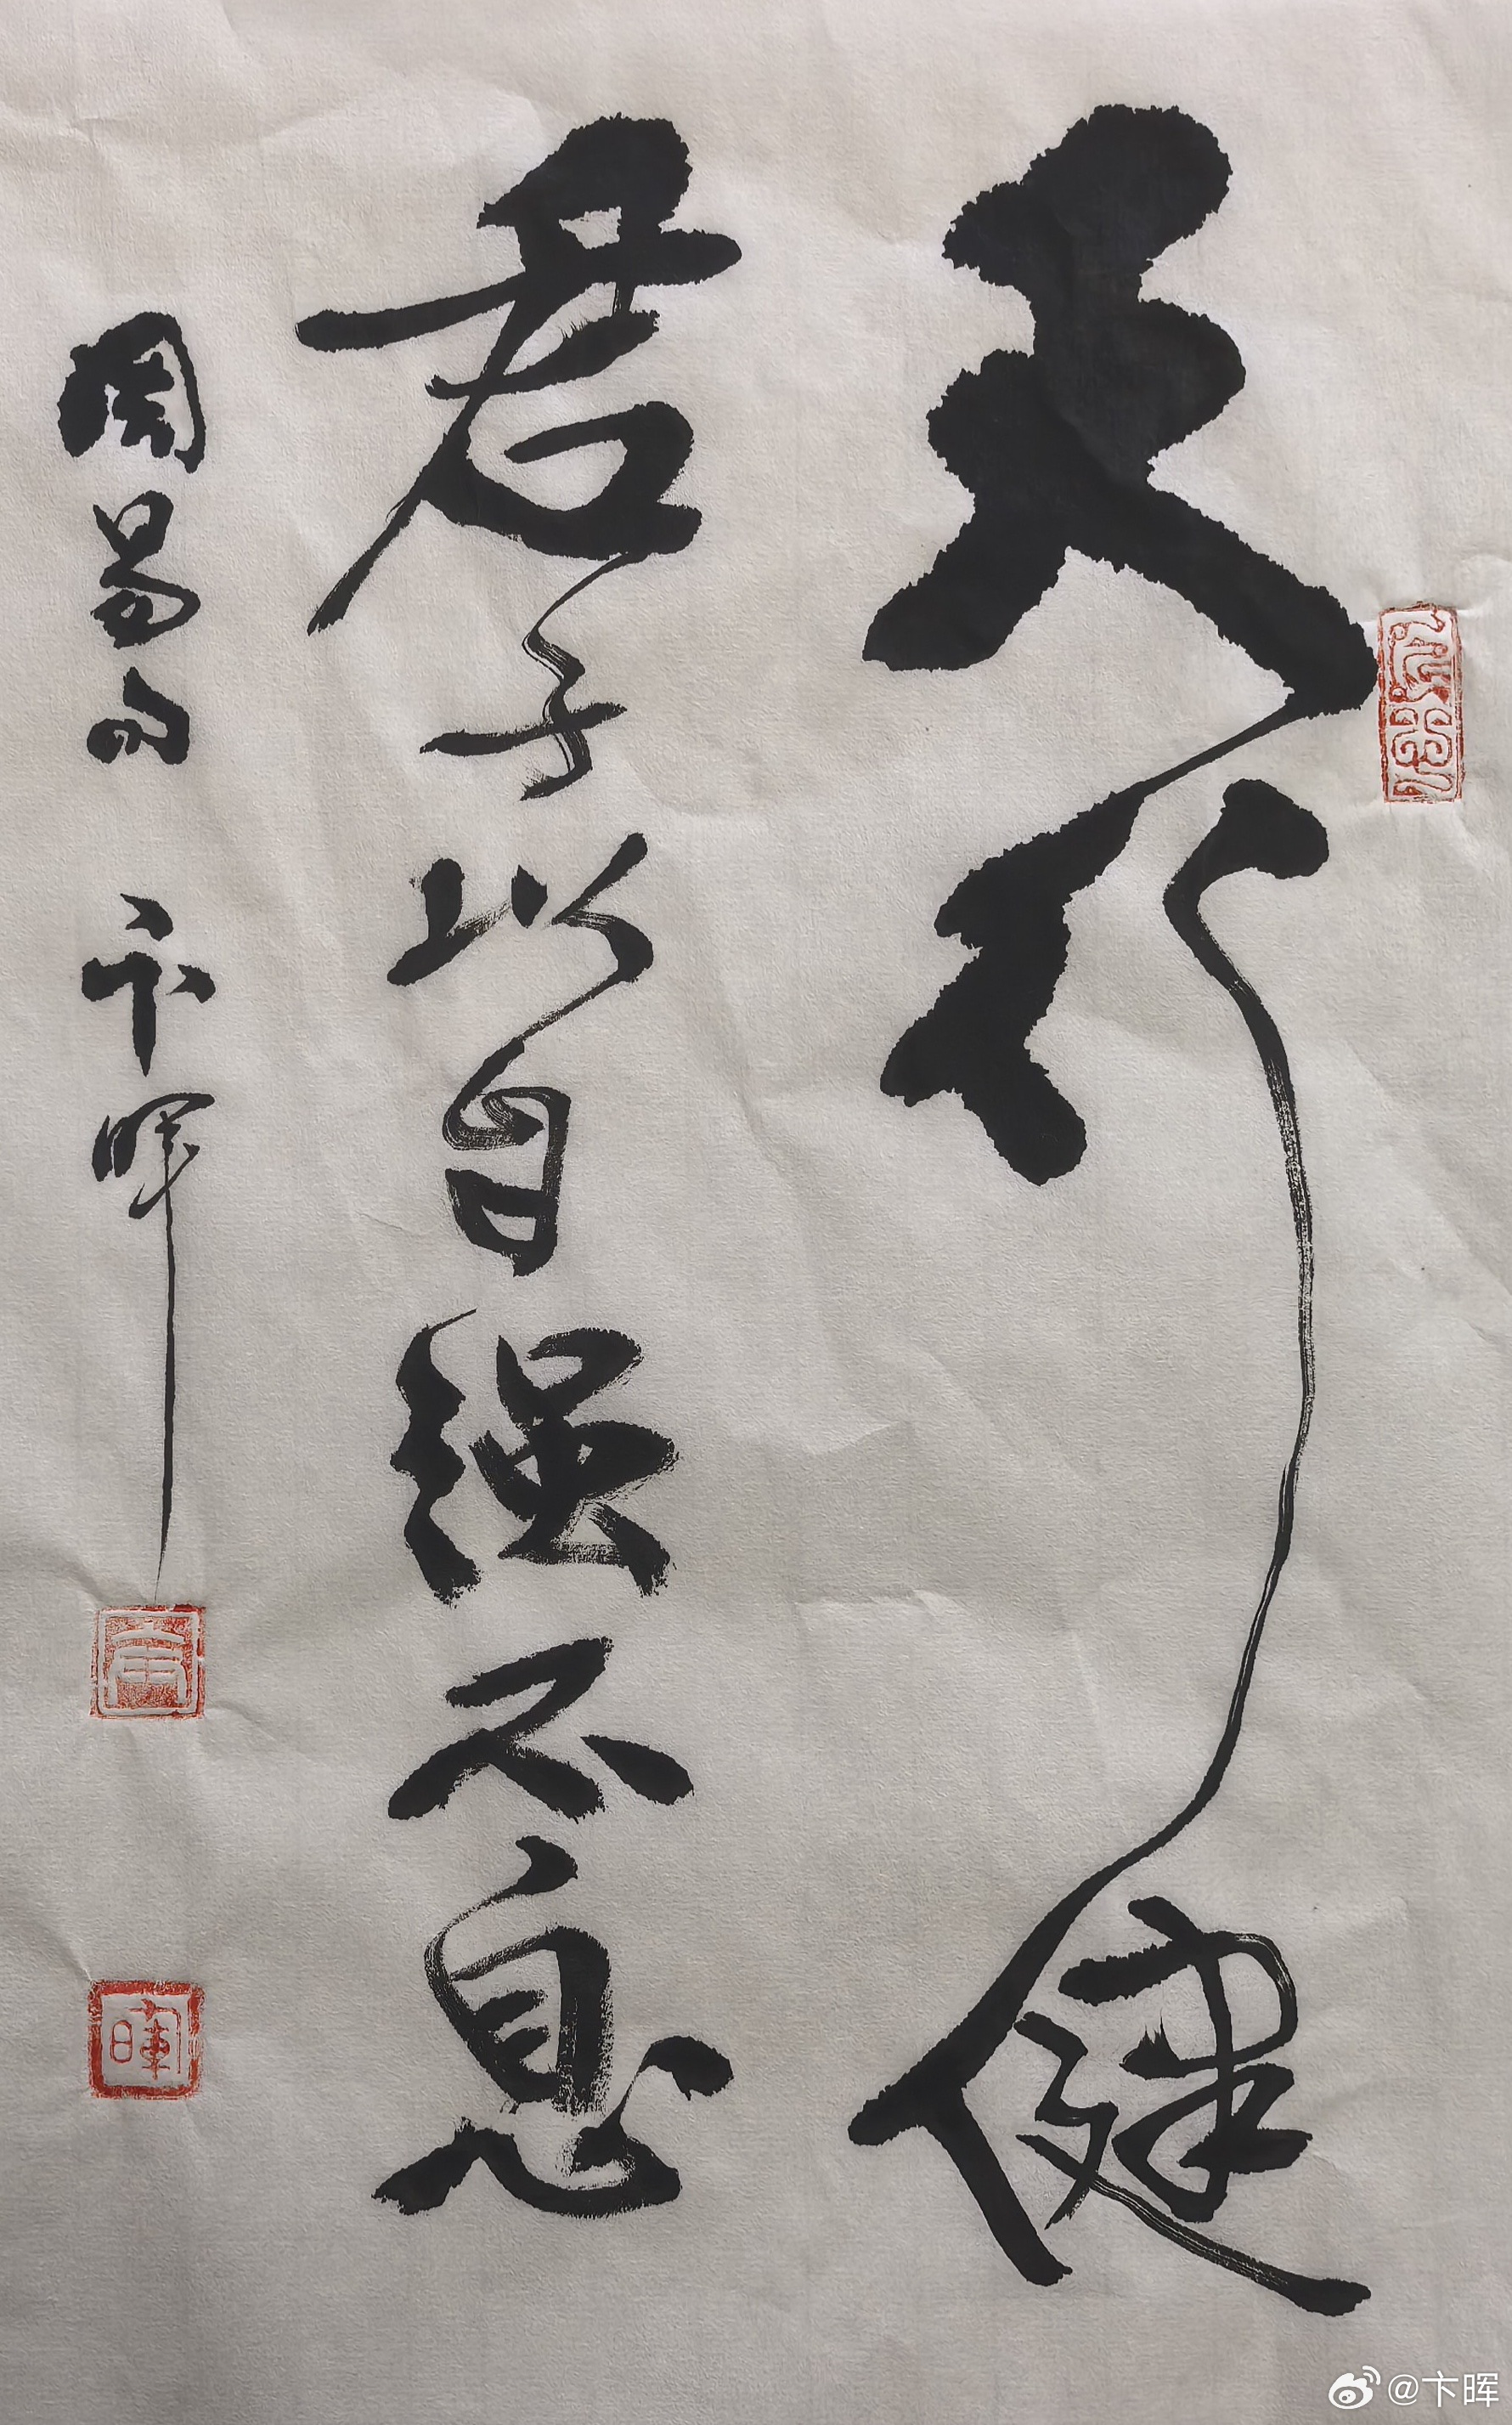 天行健
君子以自强不息
周易句 卞晖
卞
暉
@卞晖